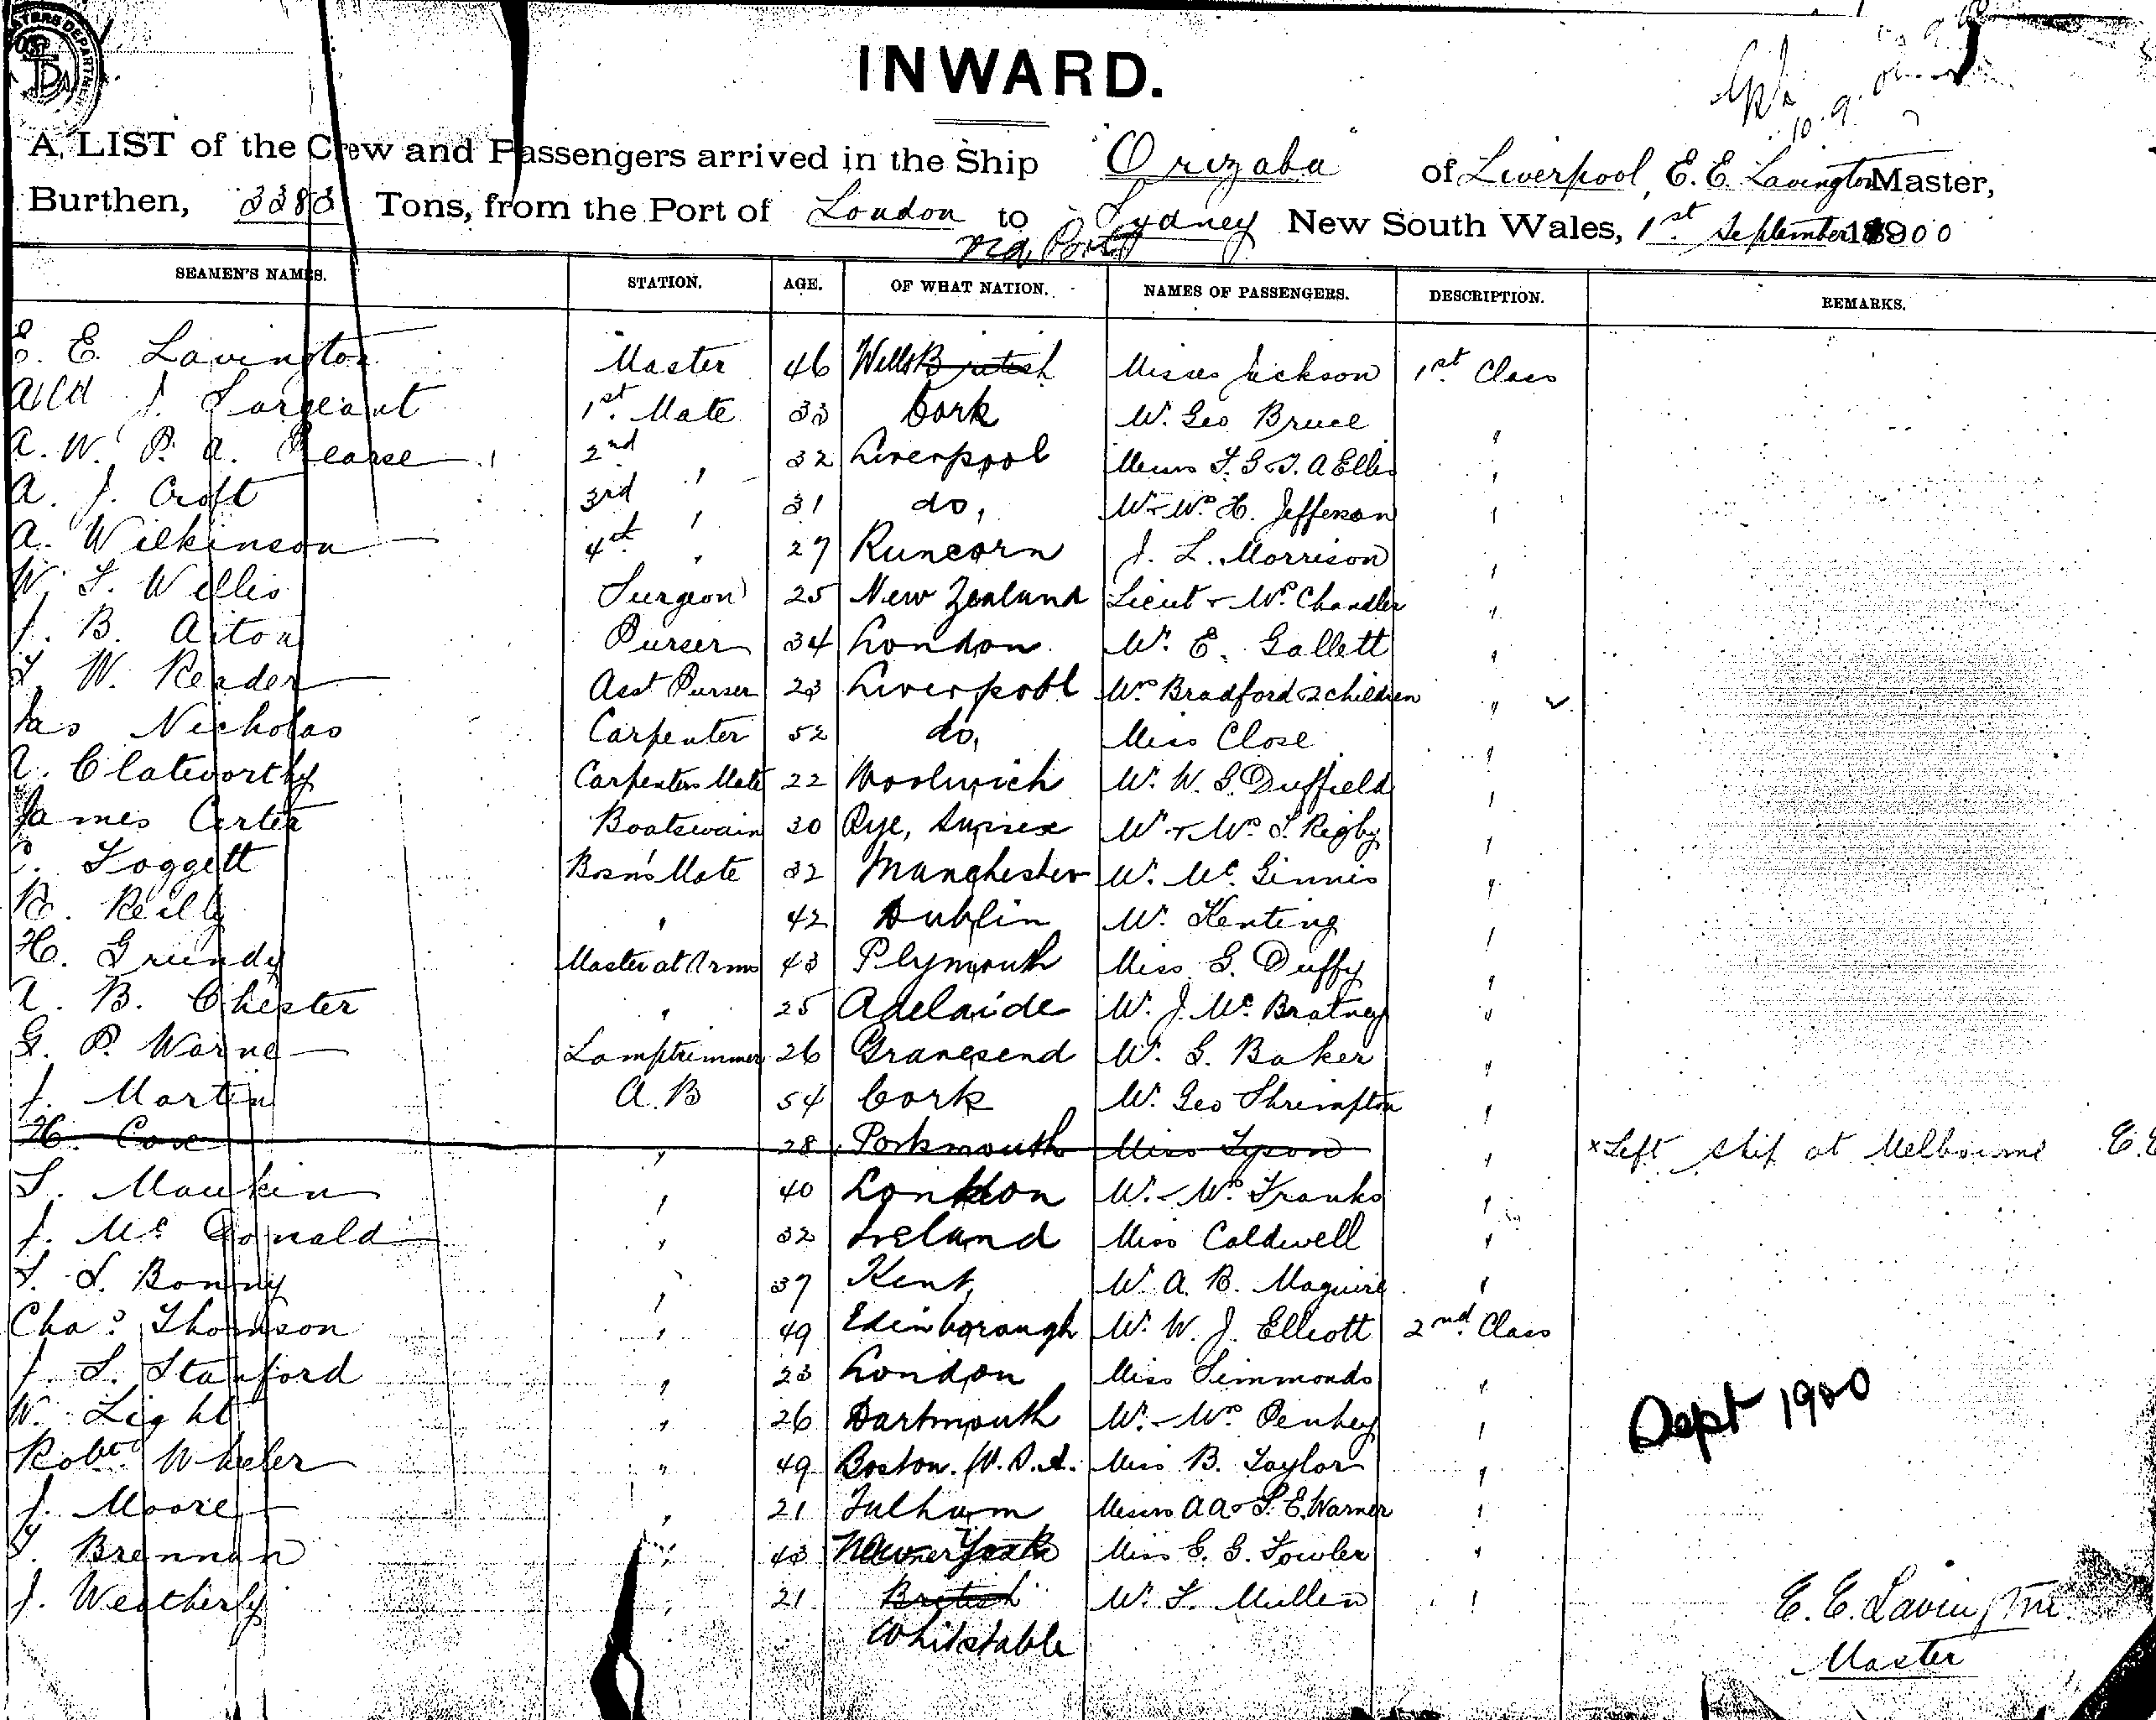 INWARD.
A LIST of the Crew and Passengers arrived in the Ship "Orizaba" of Liverpool, E. E. Lavington Master,
Burthen, 3383 Tons, from the Port of London to Sydney New South Wales, 1st September 1900
via Ports
SEAMEN'S NAMES. STATION. AGE. OF WHAT NATION. NAMES OF PASSENGERS. DESCRIPTION. REMARKS.
E. E. Lavington Master 46 Wells British Misses Jackson 1st Class
J. Sargeant 1st Mate 33 Cork Mr. Geo Bruce "
A. W. P. A. Pearse 2nd " 32 Liverpool Messrs Ellis "
A. J. Croft 3rd " 31 do, Mr & Mrs H. Jefferson "
A. Wilkinson 4th " 27 Runcorn J. L. Morrison "
W. S. Wellis Surgeon 25 New Zealand Lieut & Mrs Chandler "
J. B. Aiton Purser 34 London Mr. E. Gallett "
W. Reader Asst Purser 23 Liverpool Mrs Bradford & 2 children "
Jas Nicholas Carpenter 52 do, Miss Close "
A. Clatworthy Carpenters Mate 22 Woolwich Mr. W. G. Duffield "
James Carter Boatswain 30 Rye, Sussex Mr & Mrs S. Rigby "
C. Foggett Bosn's Mate 32 Manchester Mr. Mc Ginnis "
B. Reilly " 42 Dublin Mr. Kenting "
H. Grundy Master at Arms 43 Plymouth Miss G. Duffy "
A. B. Chester " 25 Adelaide Mr. J. Mc Bratney "
G. P. Warne Lamptrimmer 26 Gravesend Mr. G. Baker "
J. Martin A. B 54 Cork Mr. Geo Shrimpton "
H. Cox " 28 Portsmouth Miss Tyson " x Left ship at Melbourne E. E
S. Maukin " 40 London Mr. & Mrs Franks "
J. Mc Donald " 32 Ireland Miss Caldwell "
S. S. Bonny " 37 Kent, Mr A. B. Maguire "
Chas Thomson " 49 Edinborough Mr. W. J. Elliott 2nd Class
J. S. Stanford " 23 London Miss Simmonds "
W. Light " 26 Dartmouth Mr. & Mrs Penhey "
Sept 1900
Robt Wheler " 49 Boston. U.S.A. Miss B. Taylor "
J. Moore " 21 Fulham Messrs A A & S. E. Warner "
T. Brennan " 43 New York Miss E. G. Fowler "
J. Weatherly " 21 British Mr. F. Mullen "
Whitstable
E. E. Lavington
Master